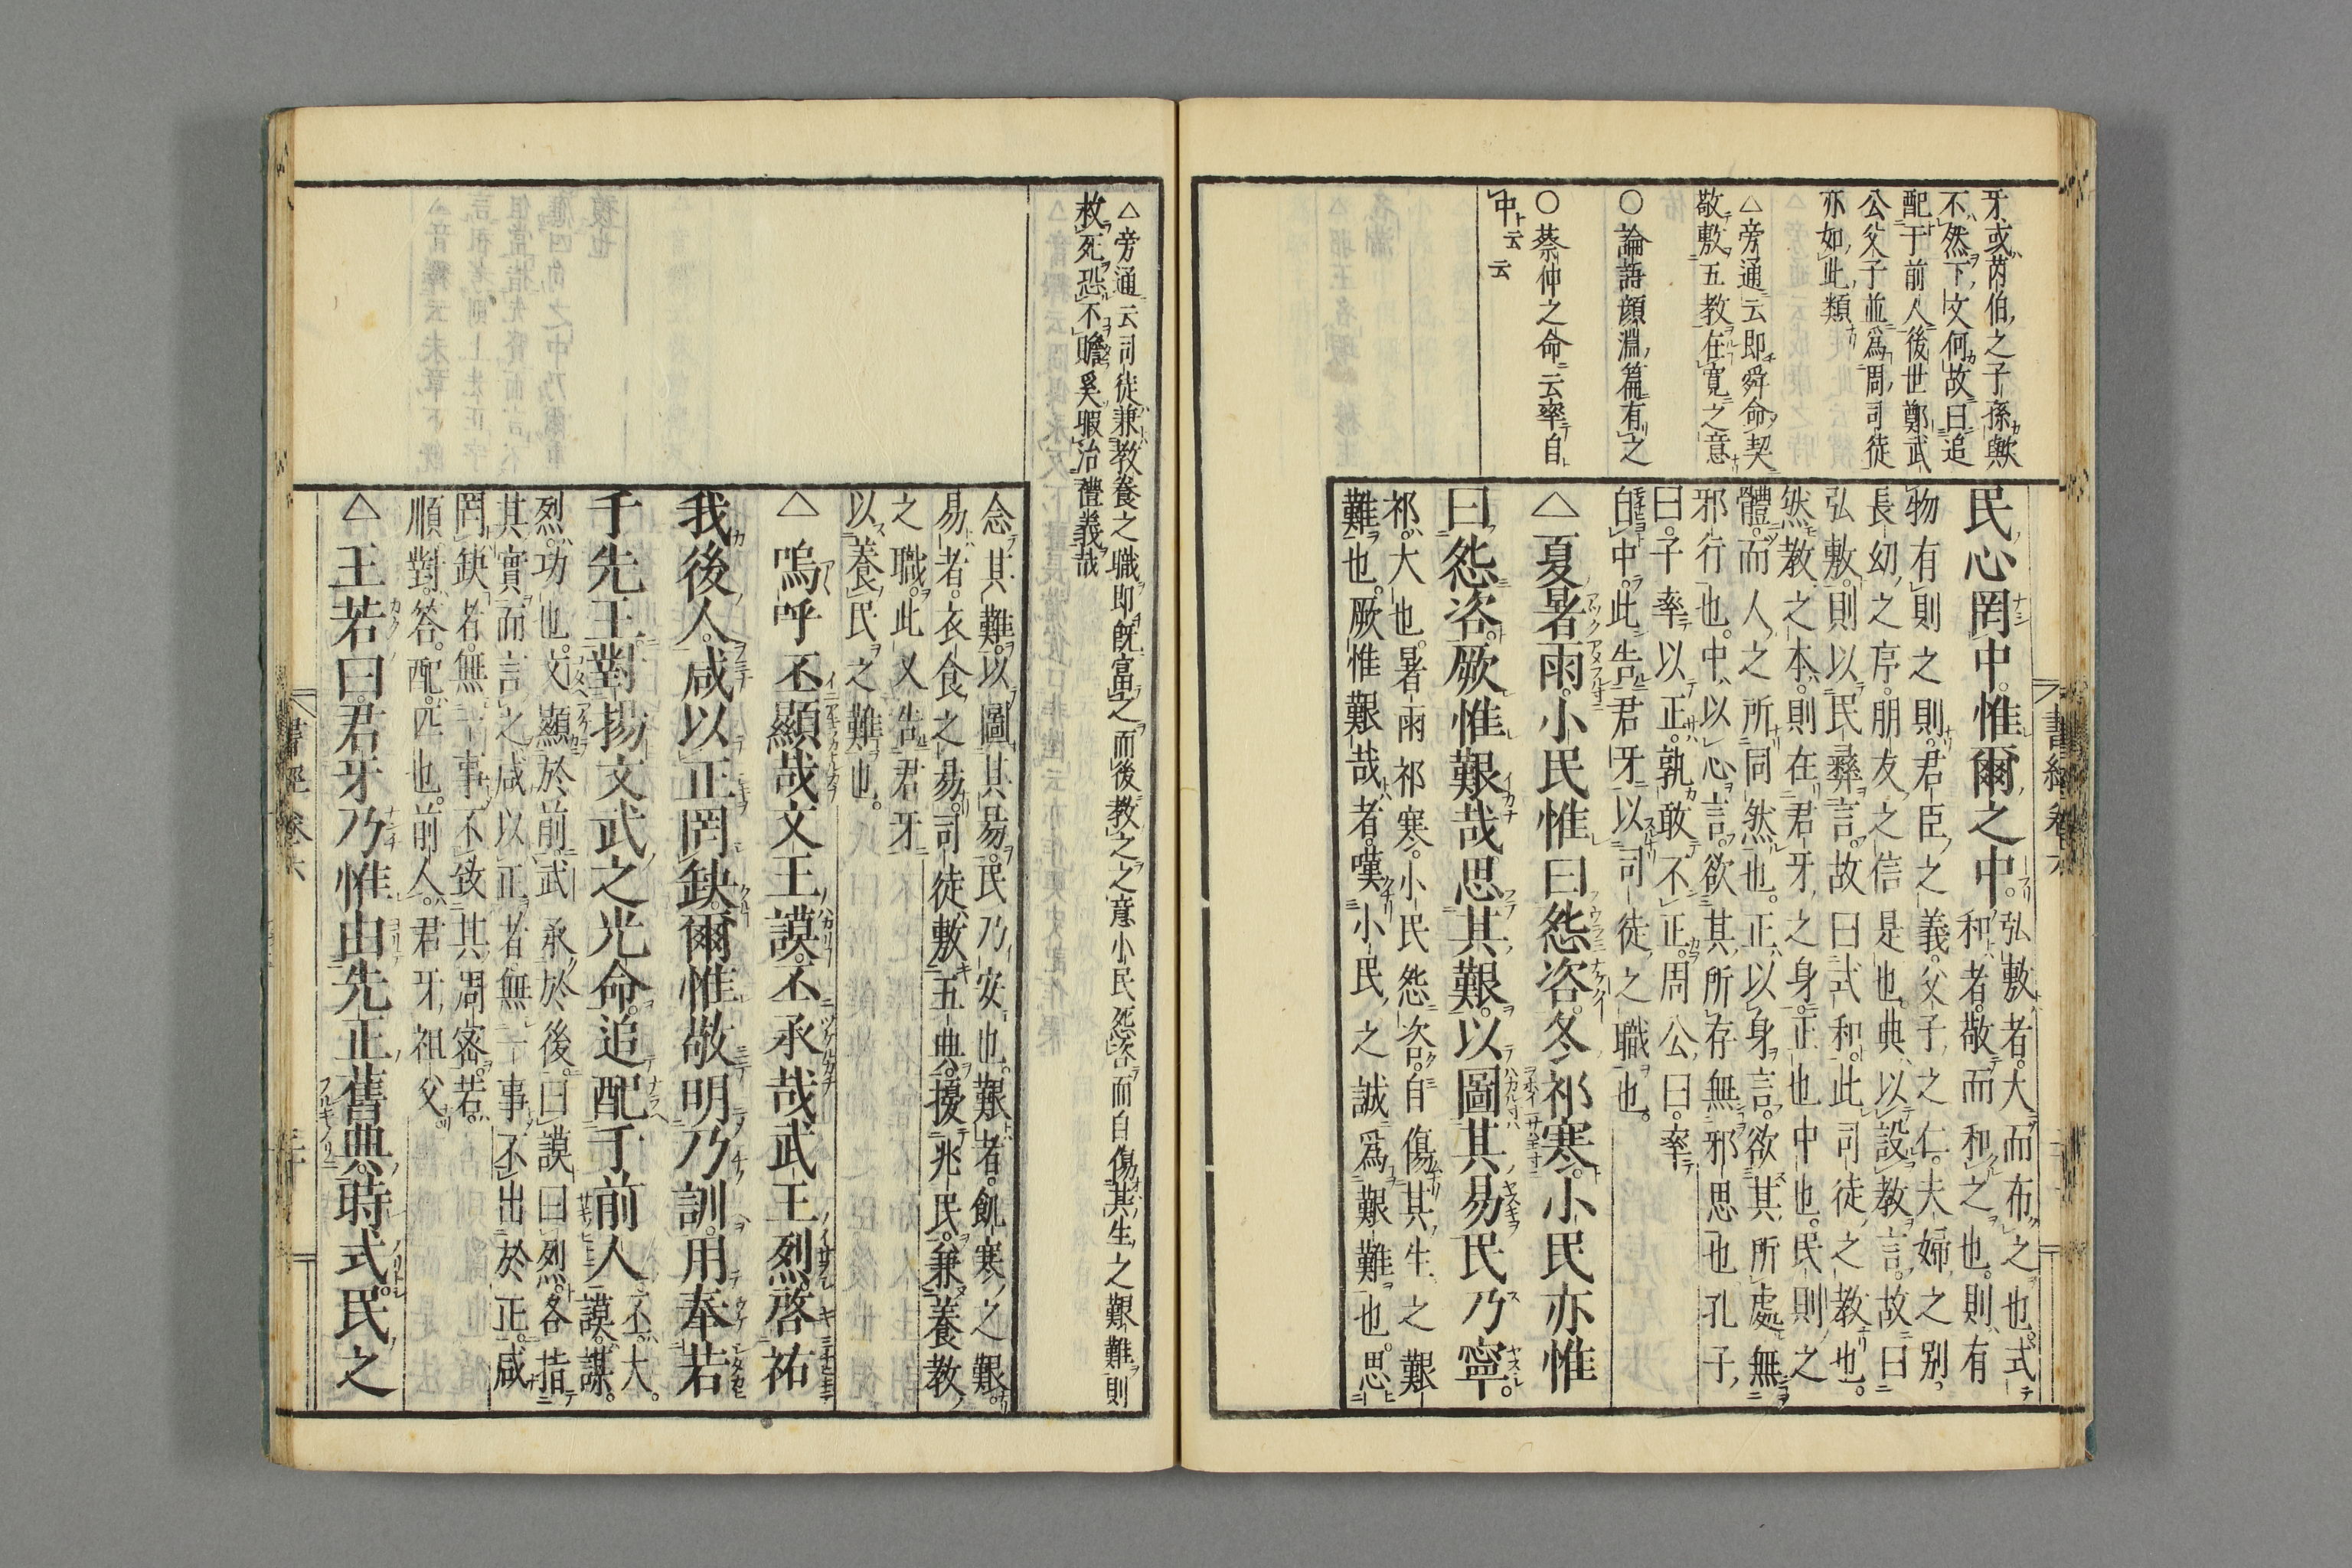 牙或芮伯之子孫歟
不然下文何故曰追
配于前人後世鄭武
公父子並爲周司徒
亦如此類
△旁通云即舜命契
敬敷五教在寛之意
○論語顔淵篇有之
○蔡仲之命云率自
中云云
民心罔中惟爾之中。弘敷者。大而布之也。式
和者。敬而和之也。則有
物有則之則。君臣之義。父子之仁。夫婦之别。
長幼之序。朋友之信是也。典以設教言。故曰
弘敷。則以民彝言。故曰式和。此司徒之教也。
然教之本。則在君牙之身。正也中也。民則之
體。而人之所同然也。正以身言。欲其所處無
邪行也。中以心言。欲其所存無邪思也孔子
曰。子率以正。孰敢不正。周公曰。率
自中。此告君牙以司徒之職也。
△夏暑雨。小民惟曰怨咨。冬祁寒。小民亦惟
曰怨咨。厥惟艱哉思其艱。以圖其易民乃寧。
祁。大也。暑雨祁寒。小民怨咨。自傷其生之艱
難也。厥惟艱哉者。嘆小民之誠爲艱難也。思
△旁通云司徒兼教養之職即既富之而後教之之意小民怨咨而自傷其生之艱難則
救死恐不贍奚暇治禮義哉
念其難。以圖其易。民乃安也。艱者。飢寒之艱。
易者。衣食之易。司徒敷五典。擾兆民。兼養教
之職。此又告君牙
以養民之難也。
△嗚呼丕顯哉文王謨。丕承哉武王烈。啓祐
我後人。咸以正罔缺。爾惟敬明乃訓。用奉若
于先王對揚文武之光命。追配于前人丕。大。
謨。謀。
烈。功也。文顯於前。武承於後。曰謨曰烈。各指
其實而言之。咸以正者。無一事不出於正。咸
罔缺者。無一事不致其周密。若。
順。對。答。配。匹也。前人。君牙祖父。
△王若曰。君牙乃惟由先正舊典。時式。民之
書經卷六
書經卷六